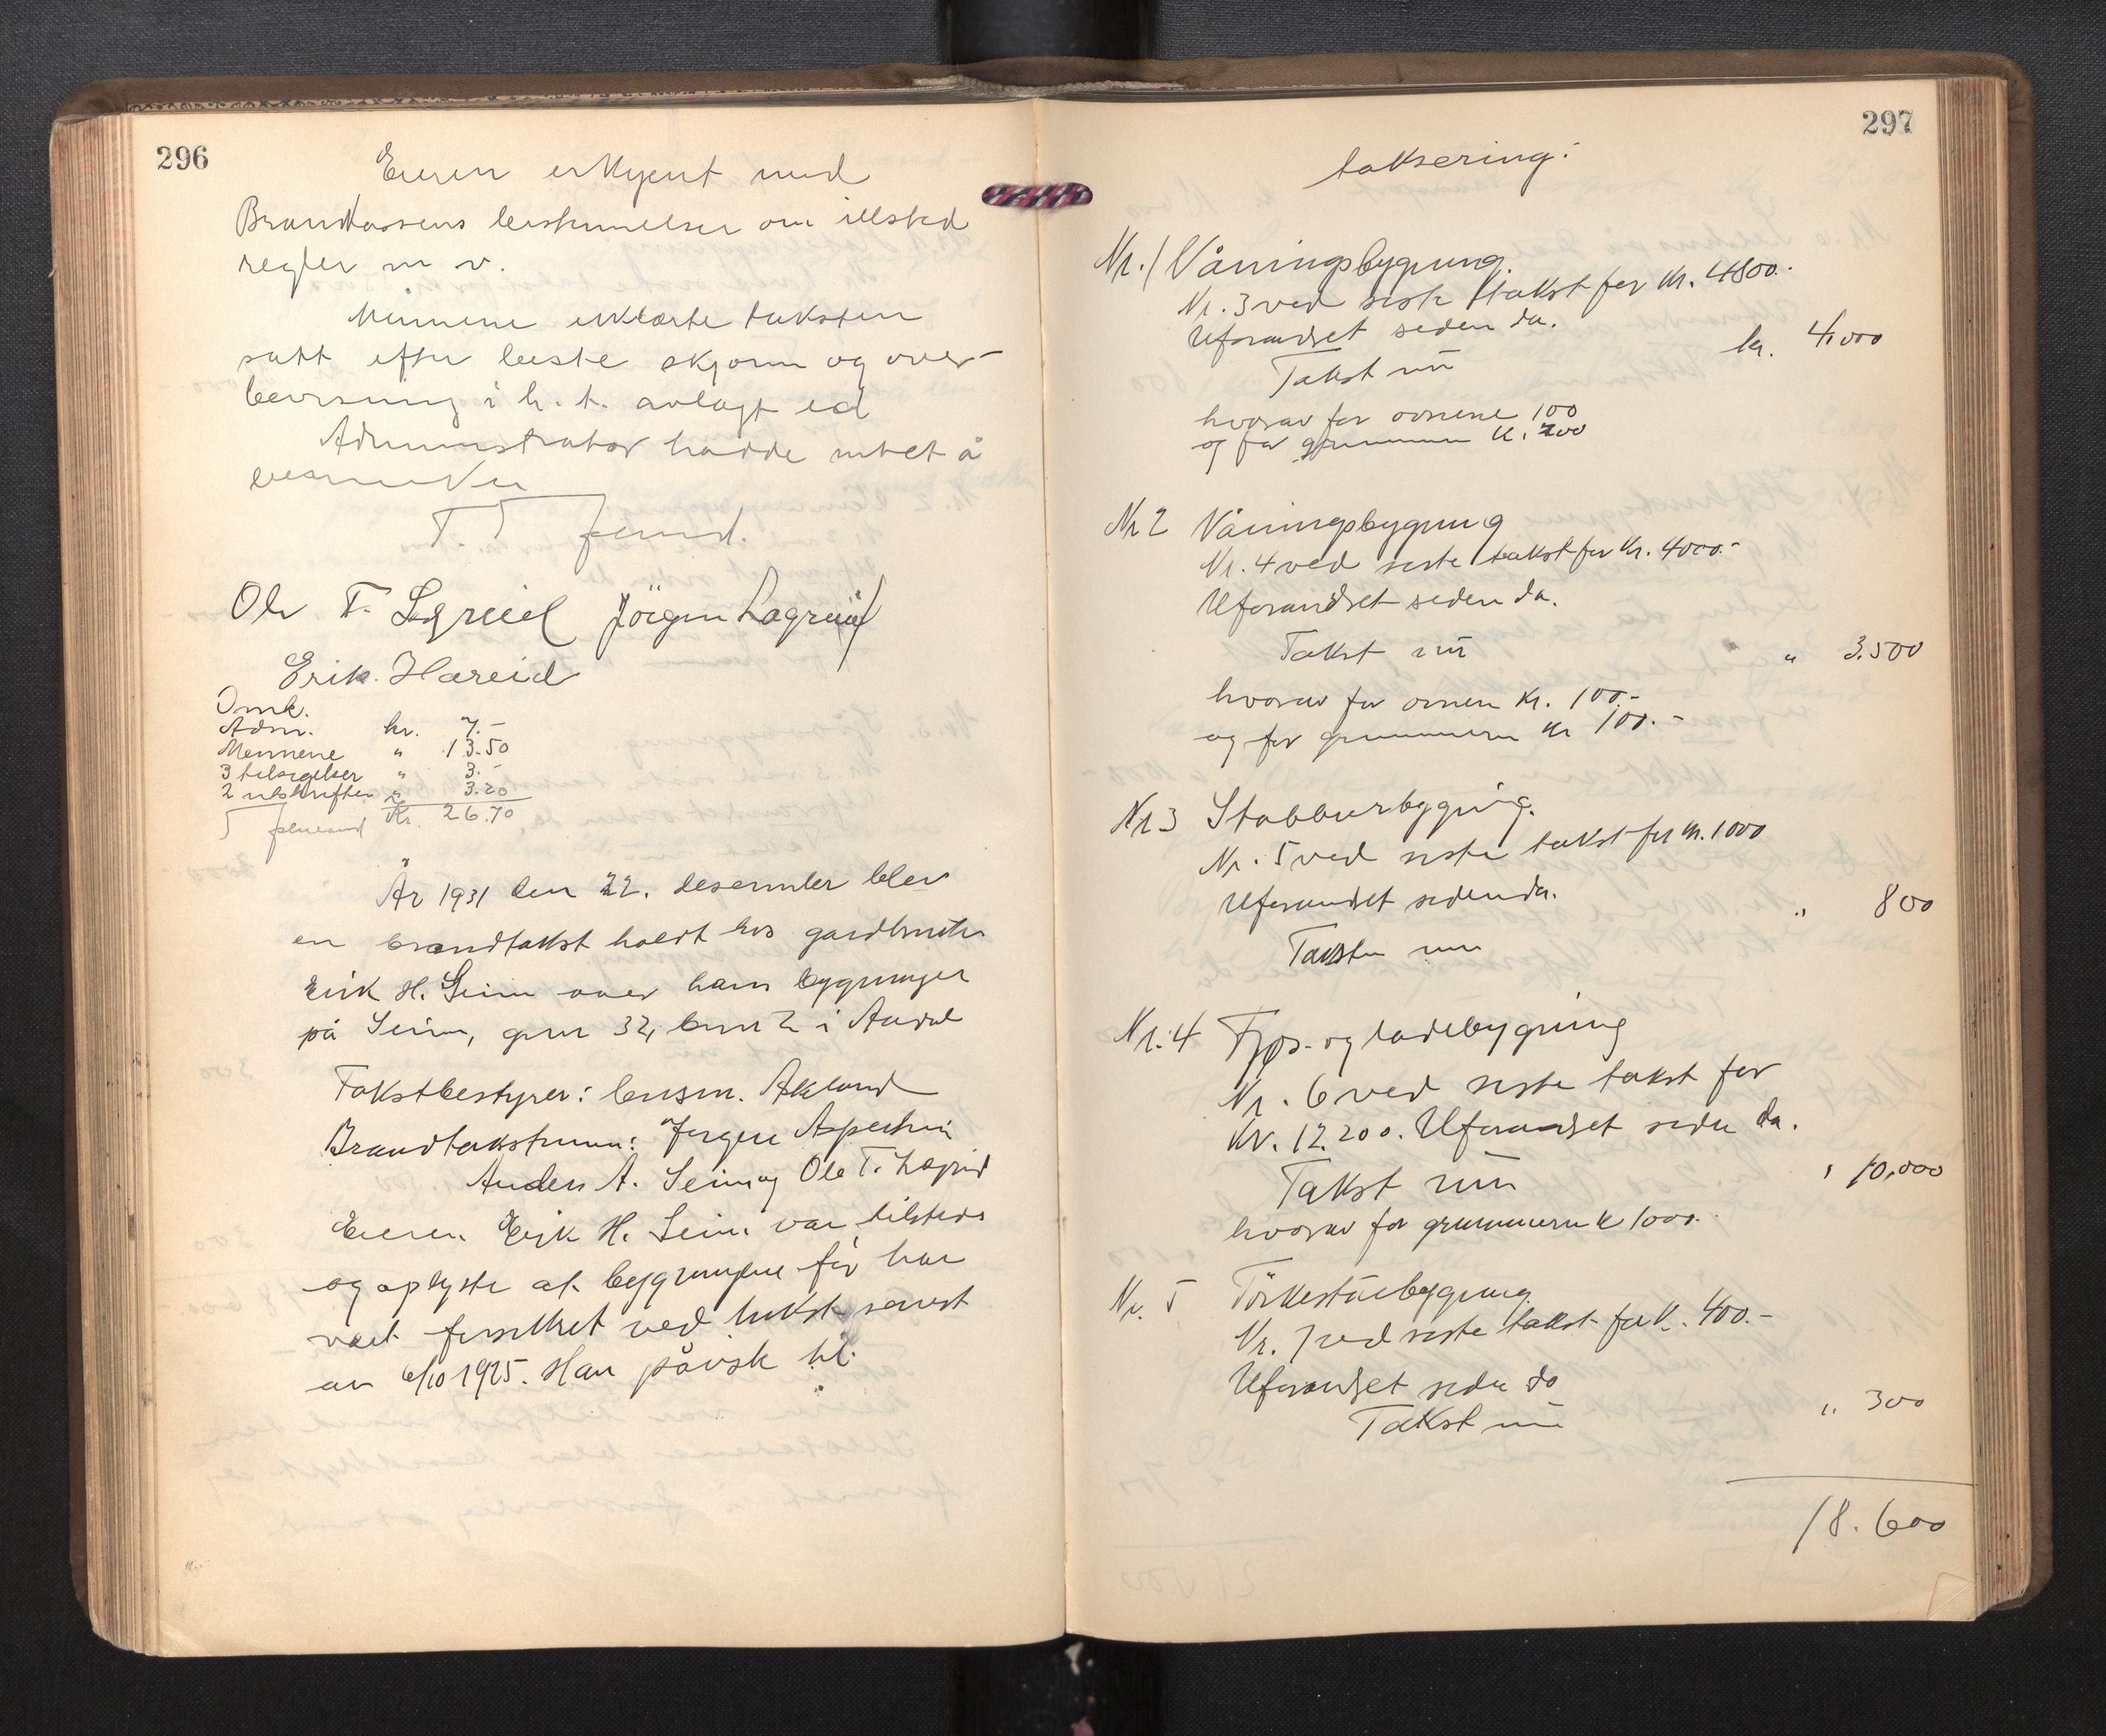 296
Eieren erkjent med
Brandkassens bestemmelser om illsted
regler m v.
Mennene erklærte taksten
satt efter beste skjønn og over-
bevisning i h. t. avlagt ed
Administrator hadde intet å
bemerke
Ole T. Lægreid Jörgen Lægreid
Erik Hareid
Omk.
Adm. kr. 7.-
Mennene " 13.50
3 tilsigelser " 3.-
2 utskrifter " 3.20
Kr. 26.70
År 1931 den 22. desember blev
en brandtakst holdt hos gardbruker
Erik H. Seim over hans bygninger
på Seim, gnr 32, bnr 2 i Audal
Takstbestyrer: lensm. Akland
Brandtakstmenn: Jørgen
Anders A. Seim og Ole T. Lægreid
Eieren Erik H. Seim var tilstede
og oplyste at bygningene før har
vært forsikret ved takst senest
av 6/10 1925. Han påviste til
297
taksering:
Nr. 1 Våningsbygning
Nr. 3 ved siste takst for Kr. 4800.-
Uforandret siden da.
Takst nu kr. 4.000
hvorav for ovnene 100
og for grunnmuren K. 200
Nr 2 Våningsbygning
Nr. 4 ved siste takst for Kr. 4000.-
Uforandret siden da.
Takst nu " 3.500
hvorav for ovnen Kr. 100.-
og for grunnmuren Kr 100.-
Nr 3 Stabbursbygning.
Nr. 5 ved siste takst for Kr. 1000
Uforandret siden da. " 800
Taksten nu
Nr. 4 Fjøs- og ladebygning
Nr. 6 ved siste takst for
Kr. 12.200. Uforandret siden da.
Takst nu " 10.000
hvorav for grunnmuren K 1000.-
Nr. 5 Törkestuebygning
Nr. 7 ved siste takst for K. 400.-
Uforandret siden da
Takst nu " 300
18.600